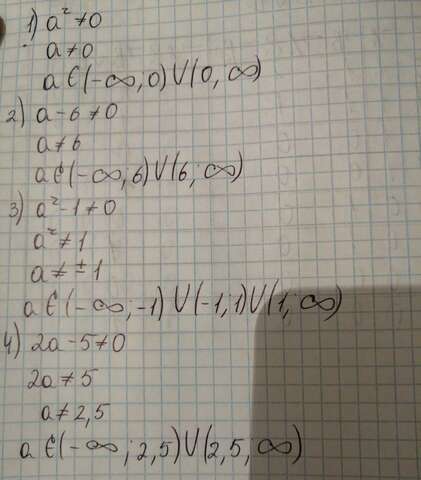 1) a² ≠ 0
a ≠ 0
a ∈ (-∞, 0) U (0, ∞)
2) a - 6 ≠ 0
a ≠ 6
a ∈ (-∞; 6) U (6; ∞)
3) a² - 1 ≠ 0
a² ≠ 1
a ≠ ± 1
a ∈ (-∞; -1) U (-1; 1) U (1; ∞)
4) 2a - 5 ≠ 0
2a ≠ 5
a ≠ 2,5
a ∈ (-∞; 2,5) U (2,5; ∞)